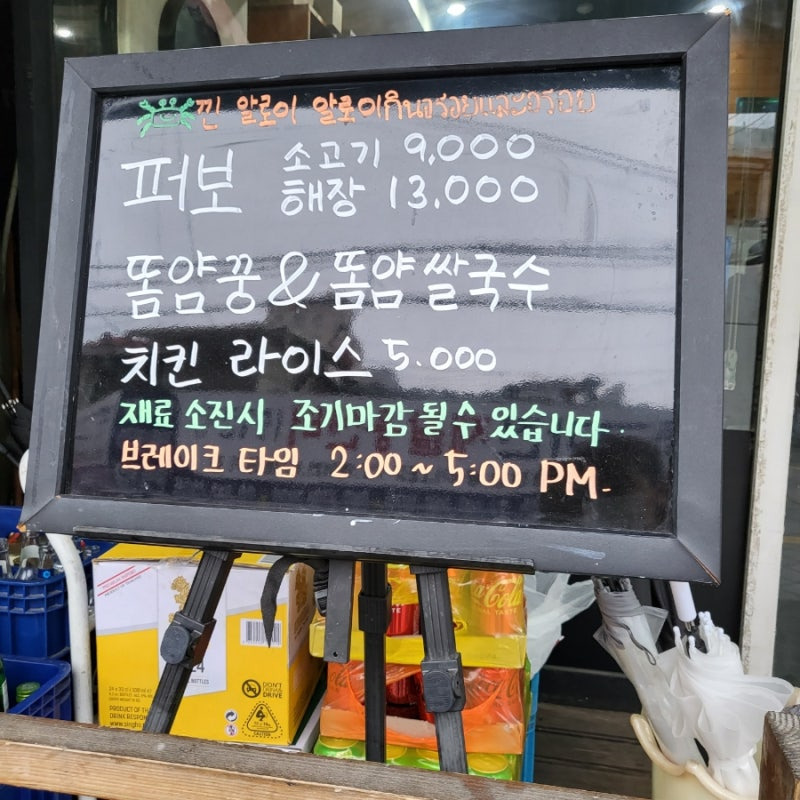 낀 알로이 알롯이กินอร่อยและอร่อย
퍼보 소고기 9,000
해장 13,000
똠얌꿍 & 똠얌쌀국수
치킨 라이스 5.000
재료 소진시 조기마감 될 수 있습니다.
브레이크 타임 2:00 ~ 5:00 PM.
DON'T DRINK DRIVE
Coca-Cola